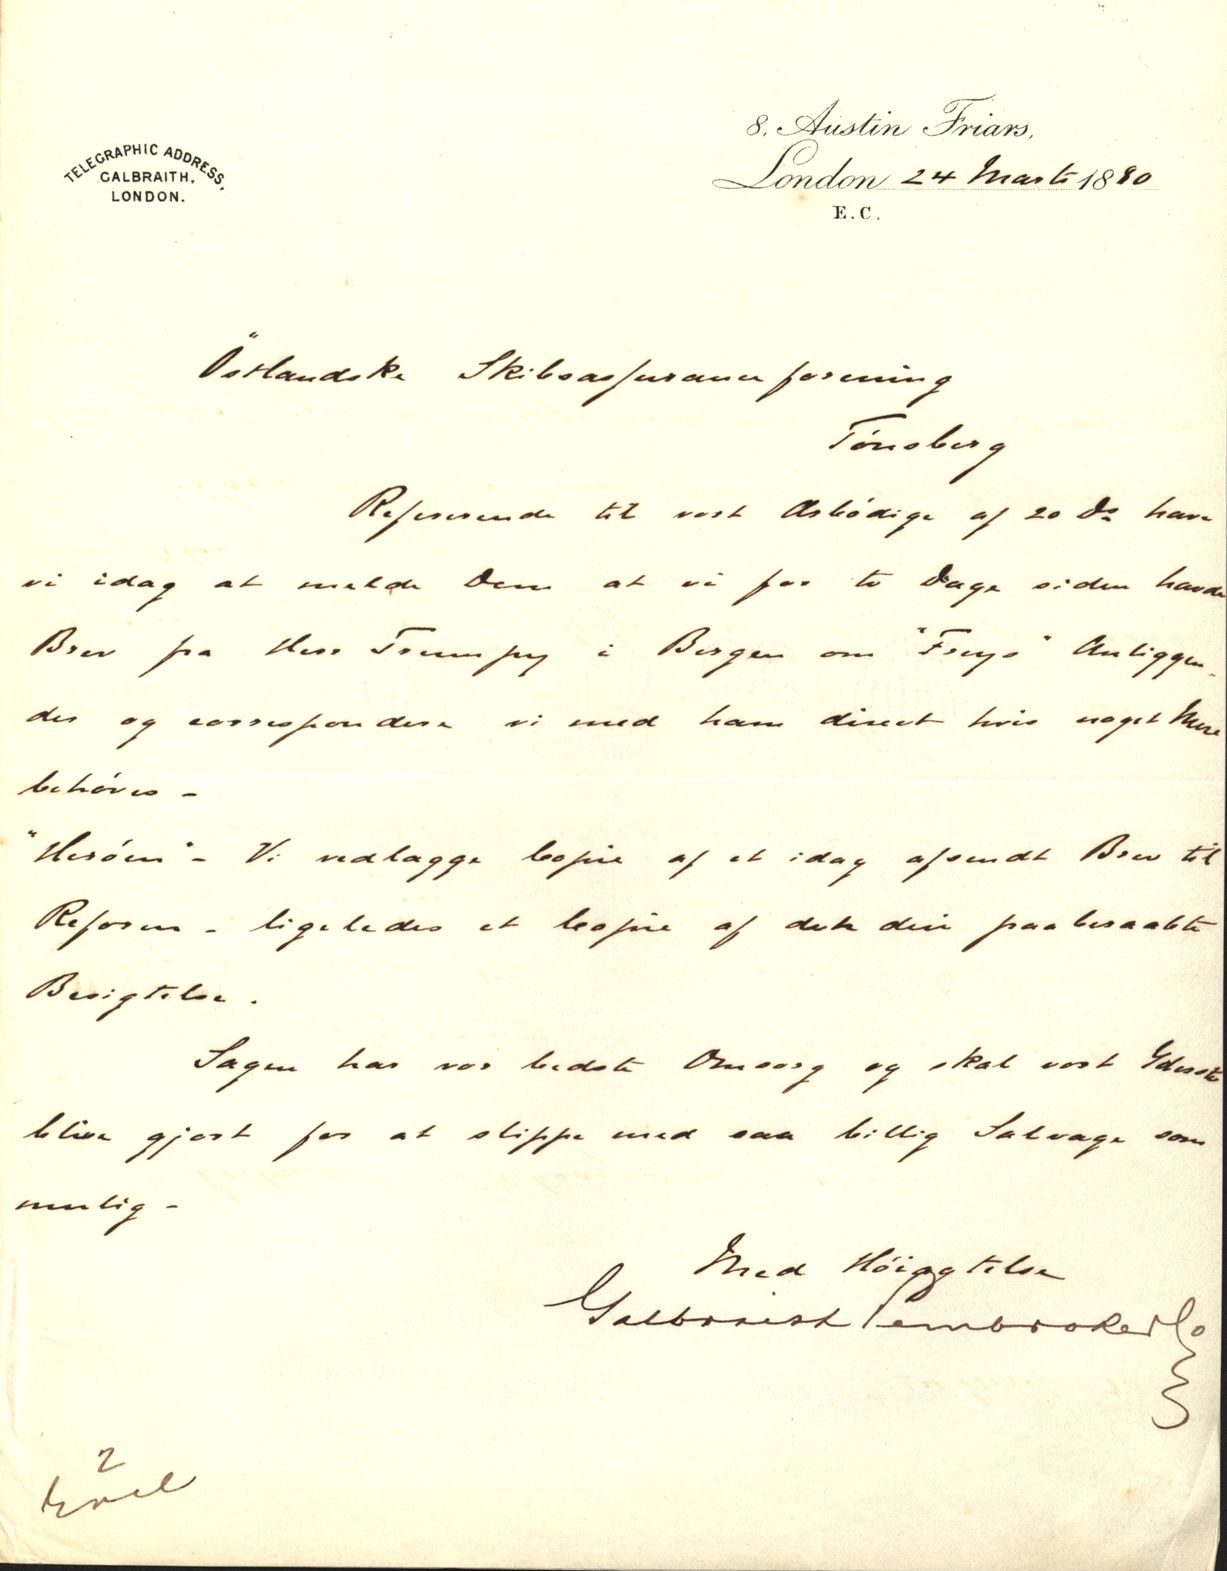 TELEGRAPHIC ADDRESS,
GALBRAITH,
LONDON.
8. Austin Friars,
London 24 Marts 1880
E.C.
Östlandske Skibsassuranceforening
Tönsberg
Refererende til vort Ærbödige af 20 ds have
vi idag at melde Dem at vi for to Dage siden havde
Brev fra Herr Trumpy i Bergen om "Freys" Anliggen-
der og correspondere vi med ham direct hvis noget Mere
behöves -
"Heröen" - Vi vedlægge Copie af et idag afsendt Brev til
Reform - ligeledes et Copie af dets deri paaberaabte
Besigtelse.
Sagen har vor bedste Omsorg og skal vort Yderste
blive gjort for at slippe med saa billig Salvage som
mulig -
Med Höiagtelse
Galbraith Pembroke & Co
2
Encl